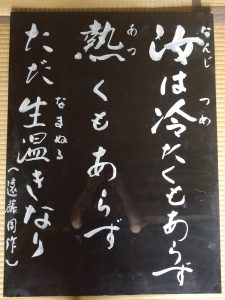 汝は冷たくもあらず
なんじ
つめ
熱くもあらず
あつ
ただ生温きなり
なまぬる
(遠藤周作)